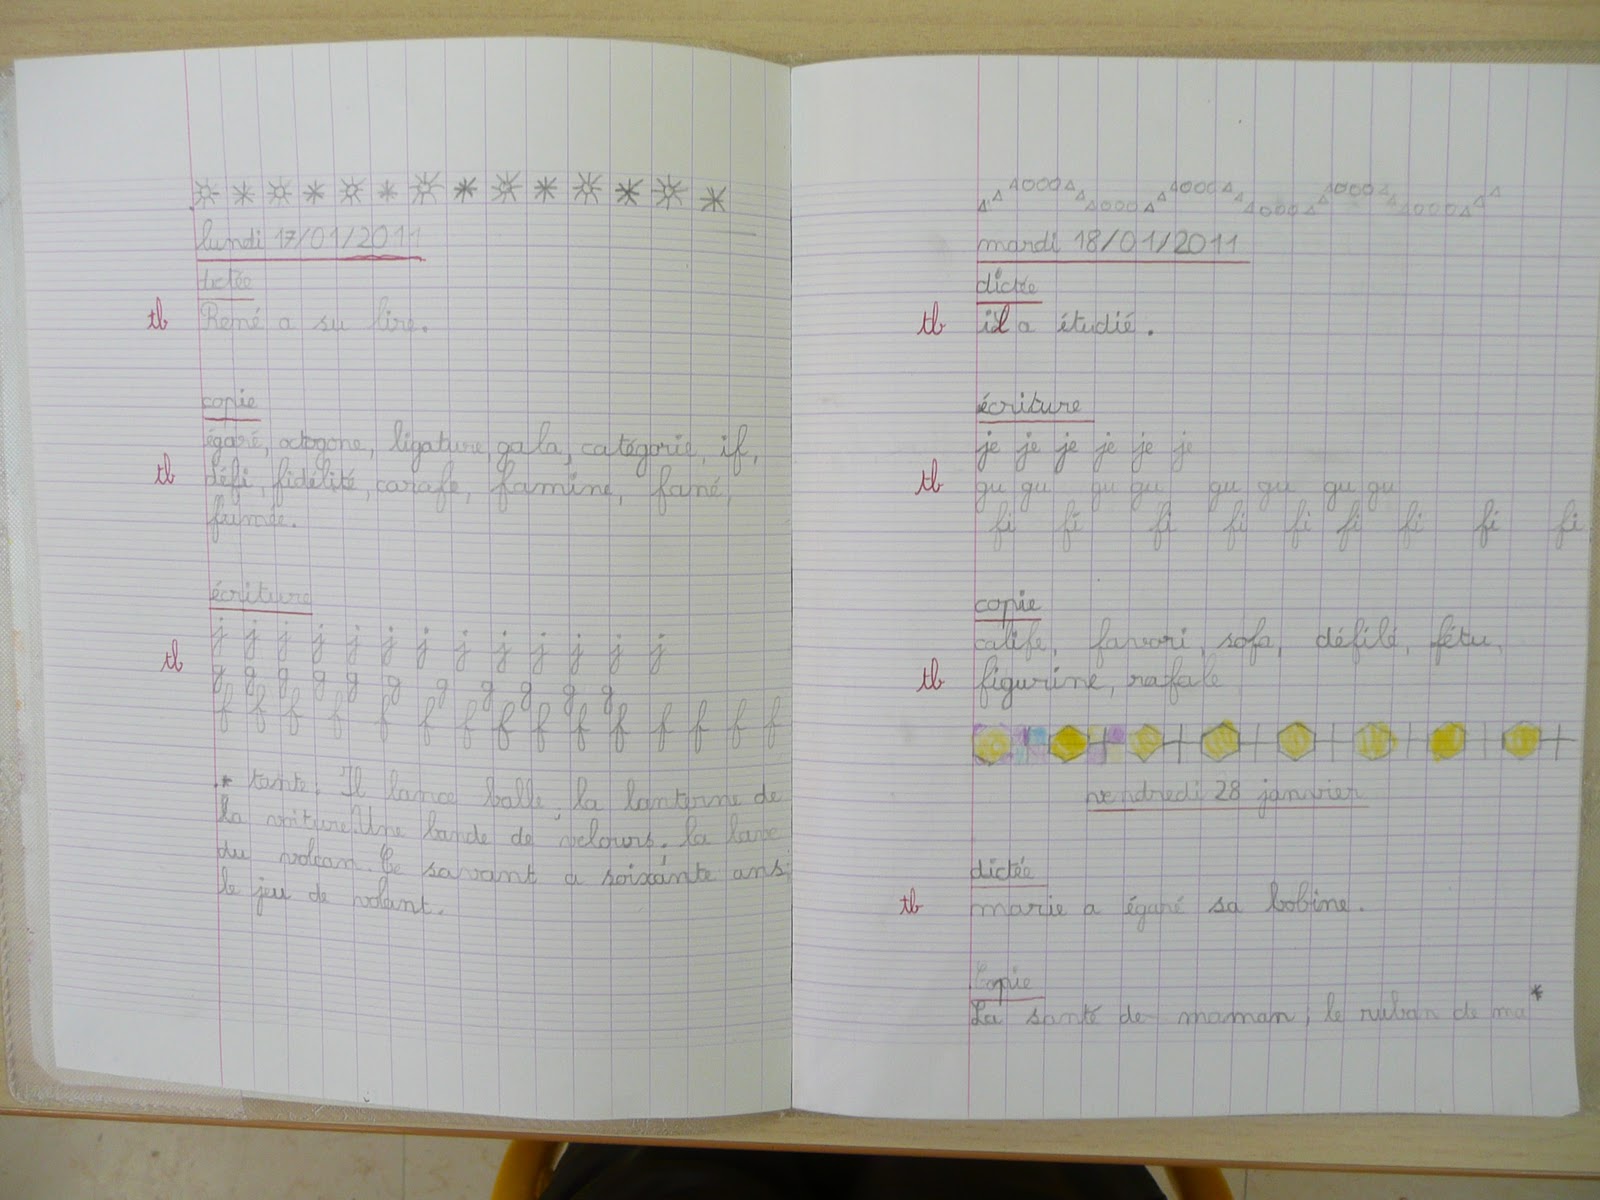 lundi 17/01/2011
dictée
tb René a su lire.
copie
égaré, octogone, ligature, gala, catégorie, if,
tb défi, fidélité, carafe, famine, fané,
fumée.
écriture
j j j j j j j j j j j j j
tb g g g g g g g g g g g
f f f f f f f f f f f f f f f
* tante. Il lance balle, la lanterne de
la voiture. Une bande de velours. la lave
du volcan. Ce savant a soixante ans;
le jeu de volant.
mardi 18/01/2011
dictée
tb il a étudié.
écriture
je je je je je je
tb gu gu gu gu gu gu gu gu
fi fi fi fi fi fi fi fi fi
copie
calife, favori, sofa, défilé, fétu,
tb figurine, rafale
vendredi 28 janvier
dictée
tb marie a égaré sa bobine.
Copie
La santé de maman, le ruban de ma *